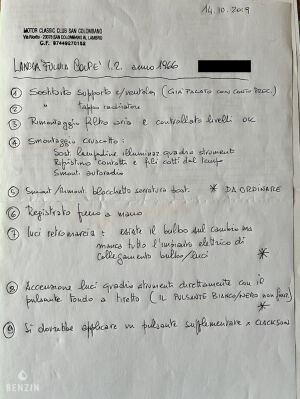 14.10.2019
MOTOR CLASSIC CLUB SAN COLOMBANO
20078 SAN COLOMBANO AL LAMBRO
C.F. 97449270152
LANCIA FULVIA COUPE' 1.2. anno 1966
① Sostituito supporto c/ventola (GIÀ PAGATO CON CONTO PREC.)
② " tappo radiatore
③ Rimontaggio filtro aria e controllato livelli OK
④ Smontaggio cruscotto:
Sost. lampadine illuminaz quadro strumenti
Ripristino contatti e fili cotti dal tempo
Smont. autoradio
⑤ Smont/Rimont blocchetto serratura * DA ORDINARE
⑥ Registrato freno a mano
⑦ Luci retromarcia: esiste il bulbo sul cambio ma
manca tutto l'impianto elettrico di
collegamento bulbo/luci *
⑧ Accensione luci quadro strumenti direttamente con il
pulsante tondo a tiretto (IL PULSANTE BIANCO/NERO non funz.)
⑨ Si dovrebbe applicare un pulsante supplementare x CLACKSON
BENZIN